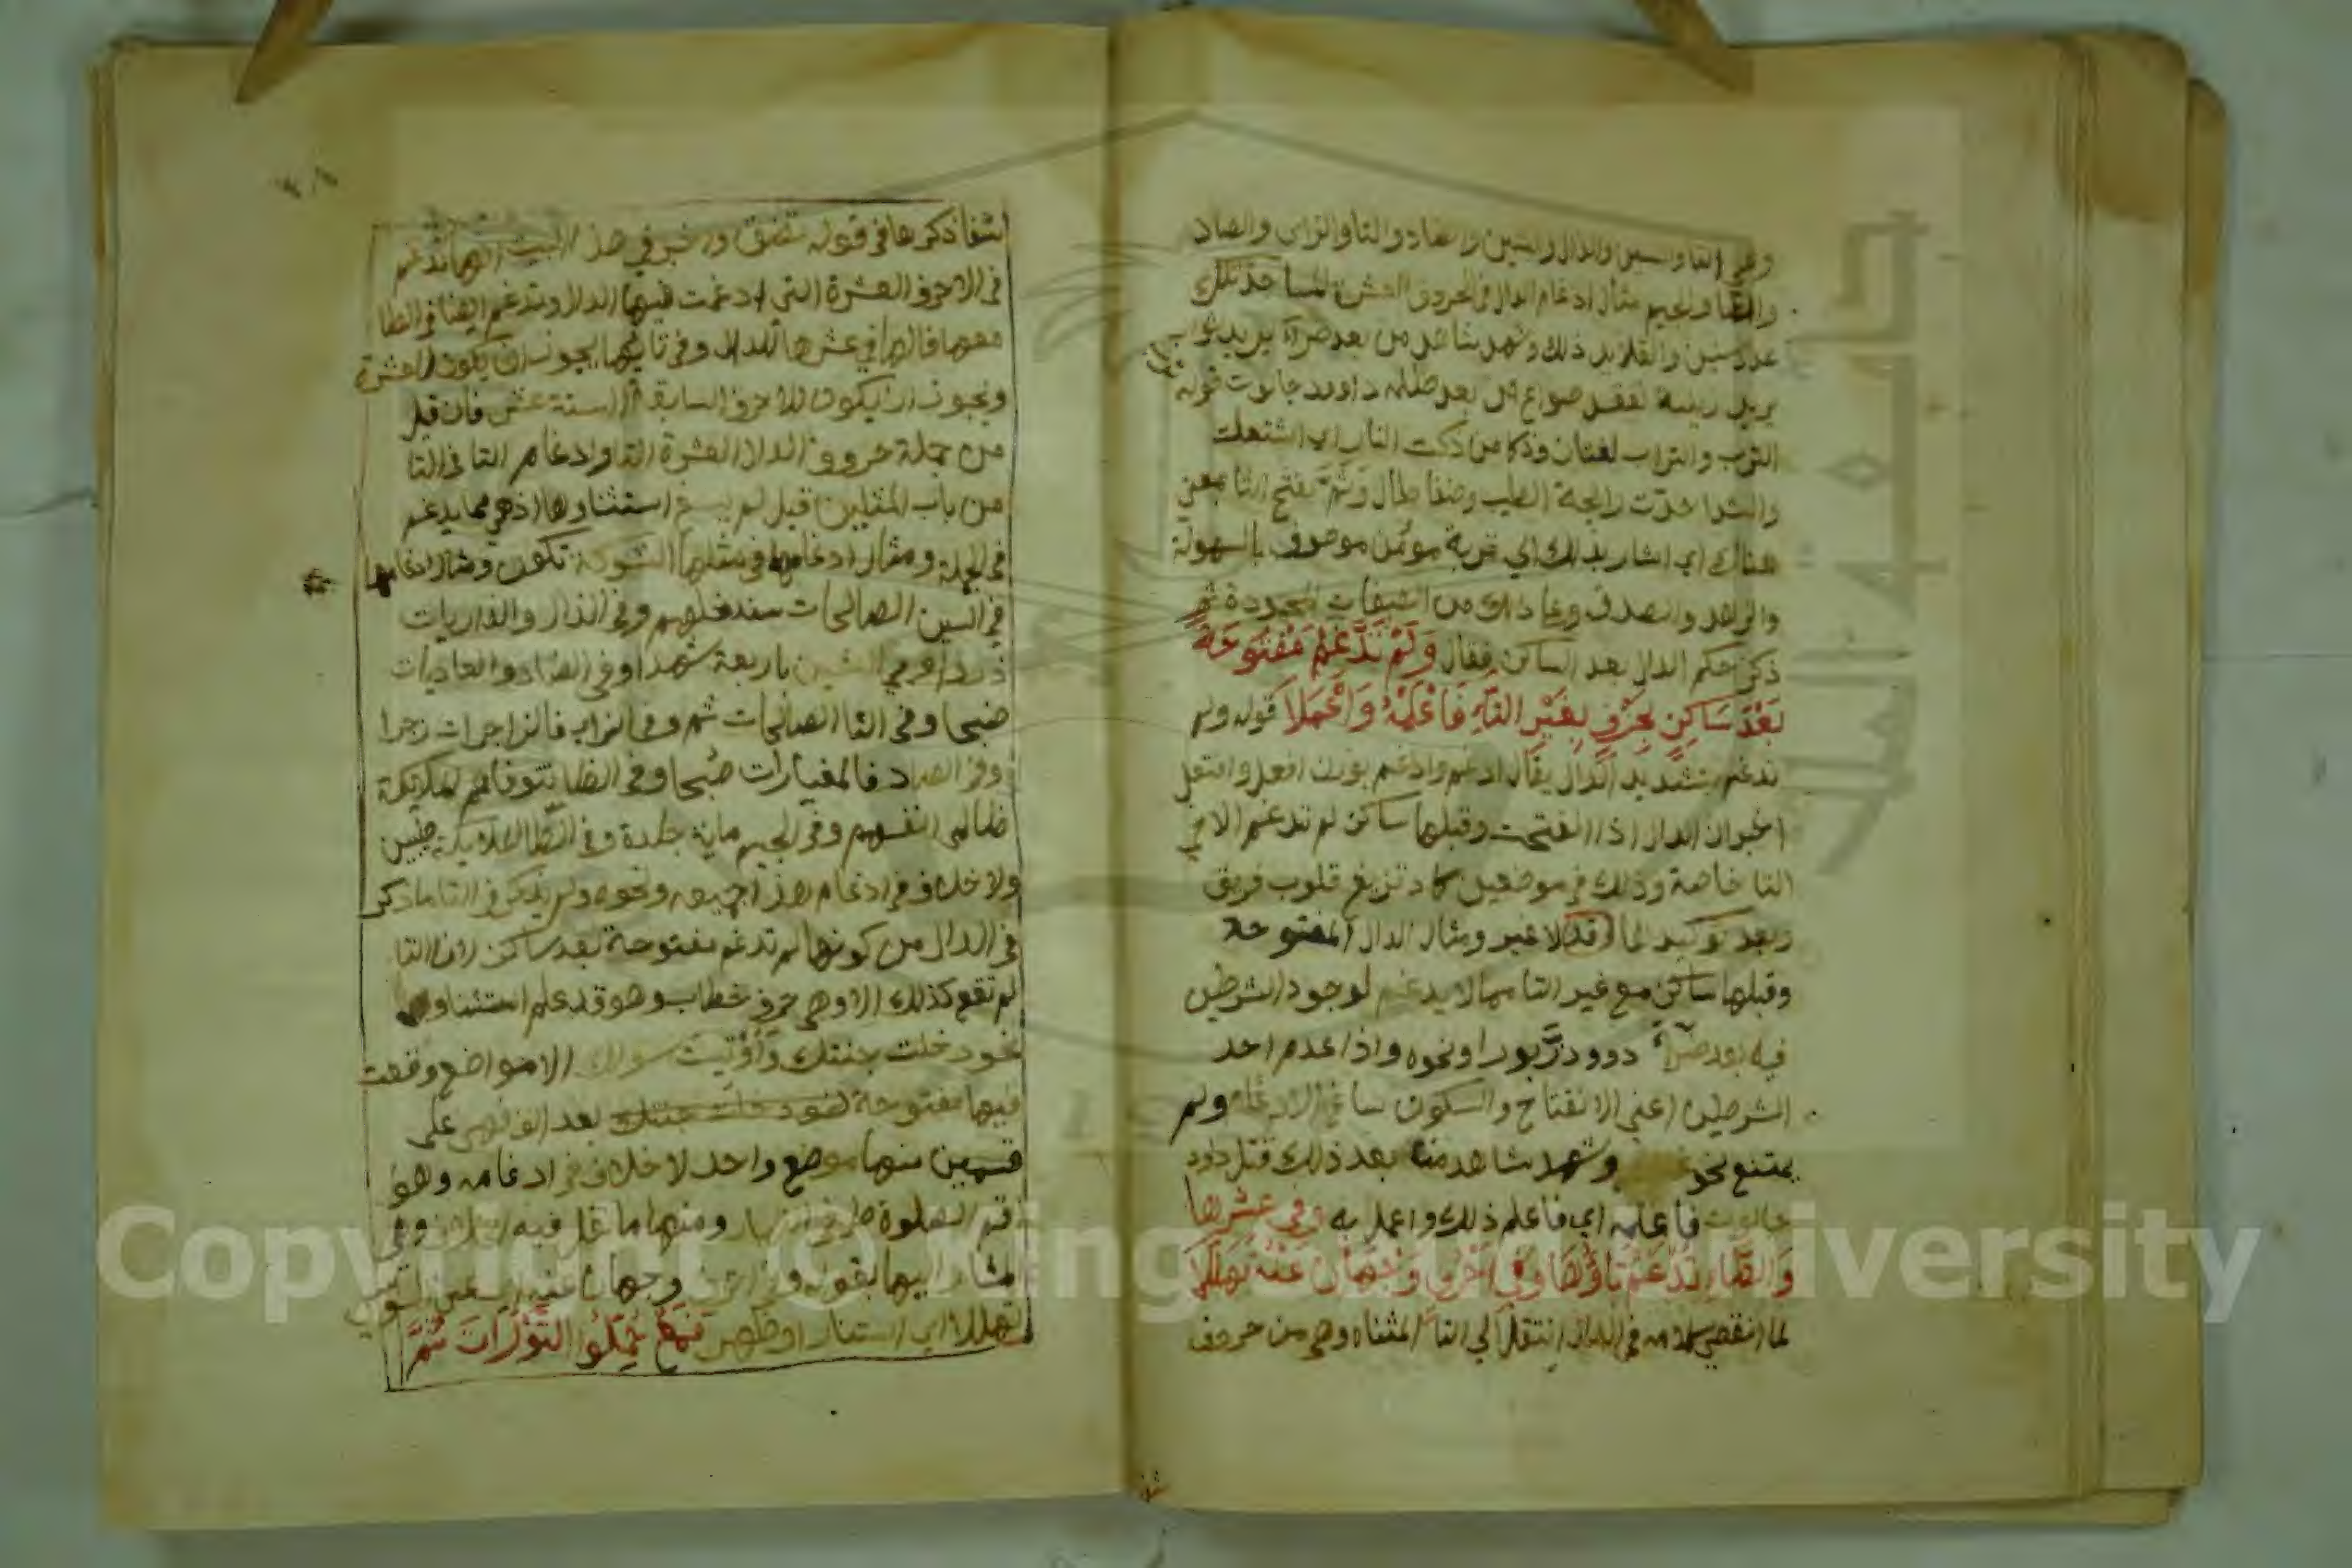 وهي التا والسين والذال والشين والضاد والثا والزاي والصاد
والظا والجيم مثال ادغام الدال في الحروف العشرة المساجد تلك
عدد سنين والقلائد ذلك وشهد شاهد من بعد ضرآ يريد ثواب
يريد زينة نفقد صواع من بعد ظلمه داوود جالوت قوله
الترب والتراب لغتان وذكا من ذكت النار اي اشتعلت
والشذا حدّت رايحة الطيب وضفا طال وثَمَّ بفتح الثا بمعنى
هناك اي اشار بذلك الي تربة مؤمن موصوف بالسهولة
والزهد والصدق وغير ذلك من الصفات المحمودة ثم
ذكر حكم الدال بعد الساكن فقال وَلَمْ تُدَّغَمْ مَفْتُوحَةً
بَعْدَ سَاكِنٍ بِحَرْفٍ بِغَيْرِ التَّاءِ فَاعْلَمْهُ وَاعْمَلَا قوله ولم
تدغم بتشديد الدال يقال ادغم وادغم بوزن افعل وافتعل
اخبر ان الدال اذا انفتحت وقبلها ساكن لم تدغم الا في
التا خاصة وذلك في موضعين كاد تزيغ قلوب فريق
وبعد توكيدها لا غير ومثال الدال المفتوحة
وقبلها ساكن مع غير التا مما لا يدغم لوجود الشرطين
فيه بعد ضرآ داوود زبورا ونحوه واذا عدم احد
الشرطين اعني الانفتاح والسكون ساغ الادغام ولم
يمتنع نحو وشهد شاهد من بعد ذلك قتل داود
جالوت فاعلمه اي فاعلم ذلك واعمل به وفي عشرها
وَالطَّاءِ تُدْغَمُ تَاؤُهَا وَفِي أَحْرُفٍ وَجْهَانِ عَنْهُ تَهَلَّلَا
لما انقضي كلامه في الدال انتقل الي التا المثناه وهي من حروف
شفا
شفا ذكرها في قوله تضق واخبر في هذا البيت انها تدغم
في الاحرف العشرة التي ادغمت فيها الدال وتدغم ايضا في الطا
معها فالها في عشرها للدال وفي تاؤها يجوز ان يكون للعشرة
ويجوز ان يكون للاحرف السابقة الستة عشر فان قيل
من جملة حروف الدال العشرة التا وادغام التا في التا
من باب المثلين قيل لم يسغ استثناوها اذ هي مما يدغم
في الجملة ومثال ادغامها في مثلها الشوكة تكون ومثال ادغامها
في السين الصالحات سندخلهم وفي الذال والذاريات
ذروا وفي الشين باربعة شهدا وفي الضاد والعاديات
ضبحا وفي الثا الصالحات ثم وفي الزاي فالزاجرات زجرا
وفي الصاد فالمغيرات صبحا وفي الظا تتوفاهم الملايكة
ظالمي انفسهم وفي الجيم ماية جلدة وفي الطا الملايكة طيبين
ولا خلاف في ادغام هذا جميعه ونحوه ولم يذكر في التا ما ذكر
في الدال من كونها لم تدغم مفتوحة بعد ساكن لان التا
لم تقع كذلك الا وهي حرف خطاب وهو قد علم استثناوه
نحو دخلت جنتك وأوتيت سولك الا مواضع وقعت
فيها مفتوحة بعد الف فهي على
قسمين منها موضع واحد لا خلاف في ادغامه وهو
اقم الصلوة طرفي النهار ومنها ما نقل فيه الخلاف وهي
المشار اليها بقوله وفي احرف وجهان عنه اي عن السوسي
تهللا اي استنار اوظهر فَمَعْ حُمِّلُوا التَّوْرَاةَ ثُمَّ